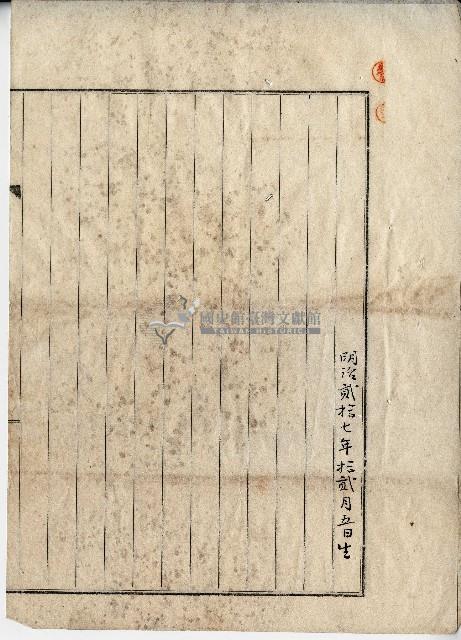 明治貳拾七年拾貳月五日生
國史館臺灣文獻館
TAIWAN HISTORICA